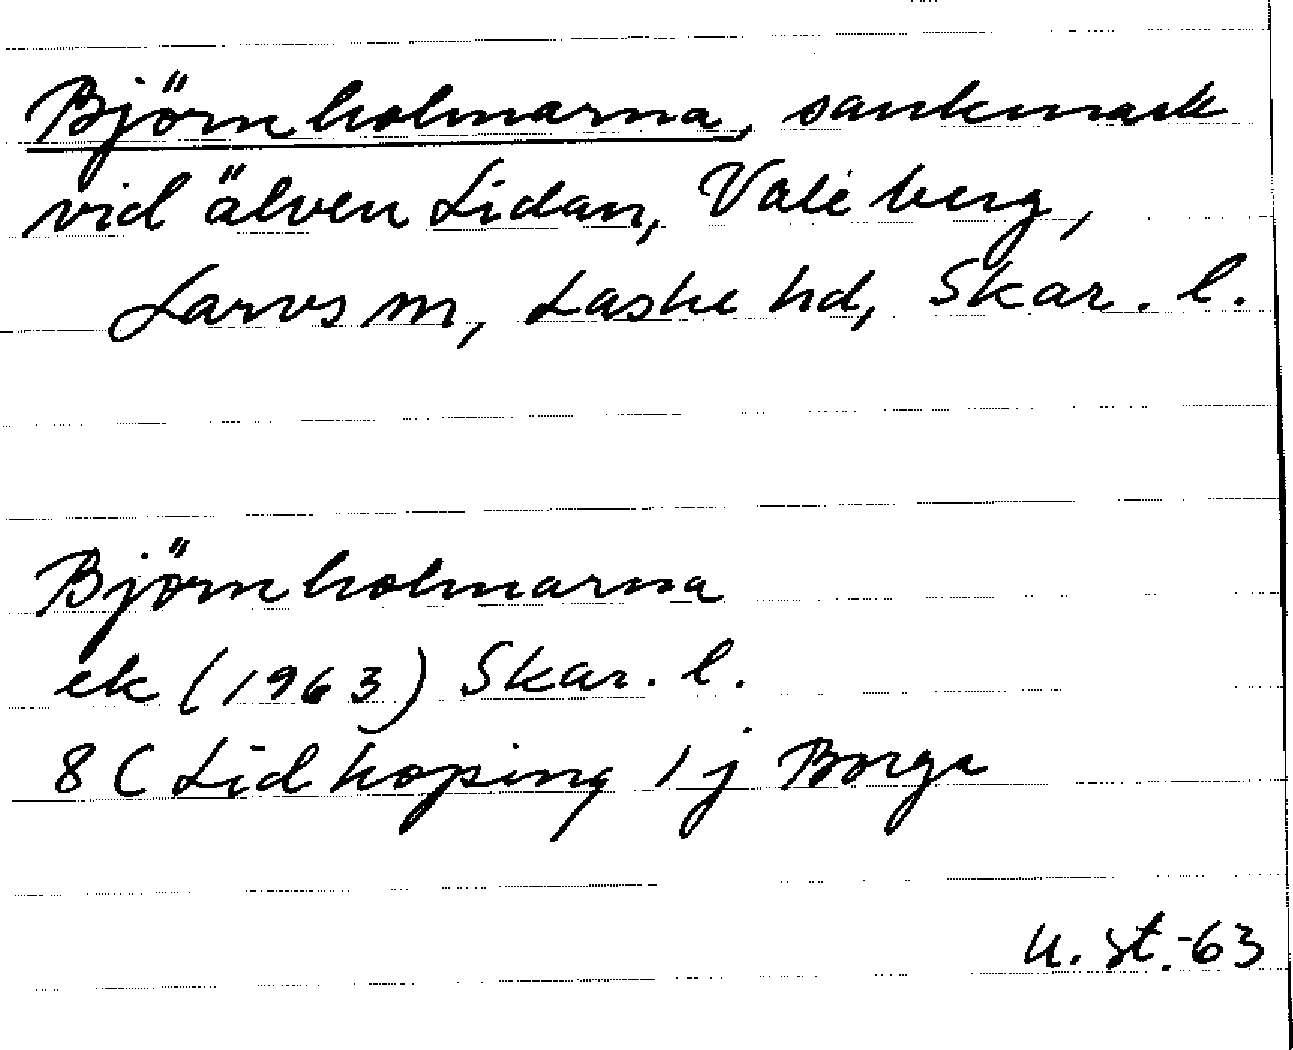 Björnholmarna, sankmark
vid älven Lidan, Valeberg,
Larvs m, Laske hd, Skar. l.
Björnholmarna
ek (1963) Skar. l.
8C Lidköping 1j Borga
u. st.-63